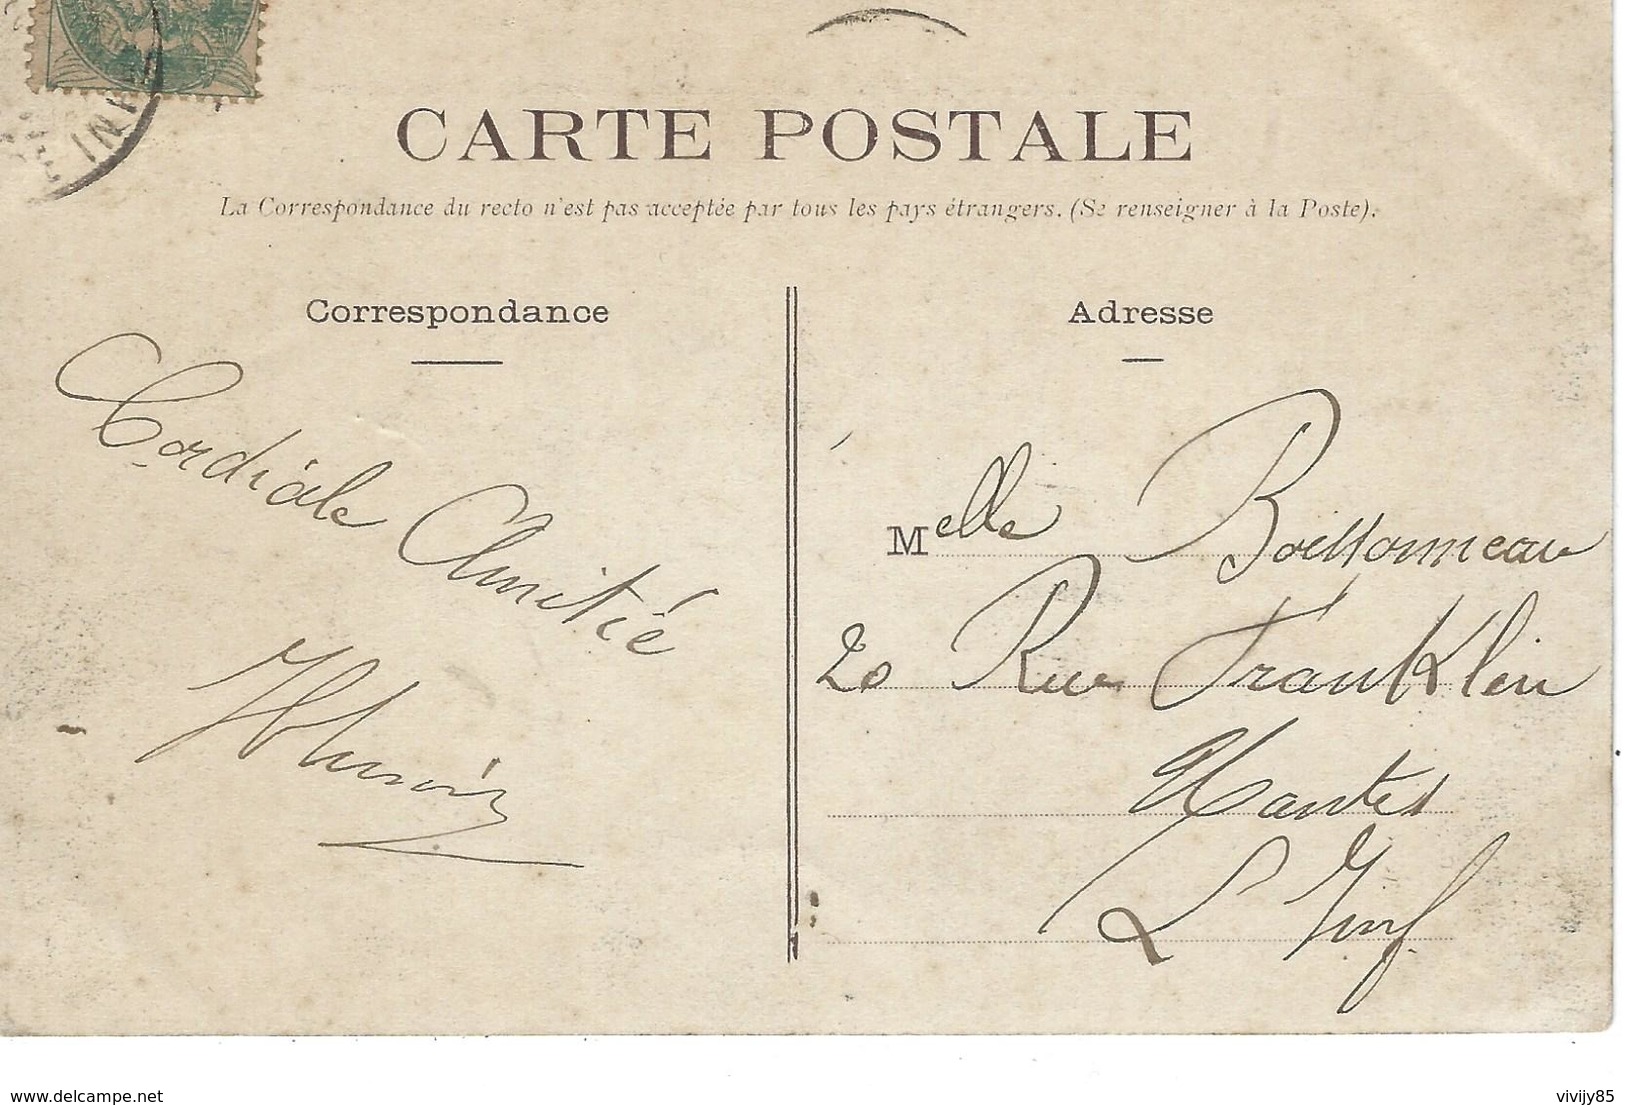 CARTE POSTALE
La Correspondance du recto n'est pas acceptée par tous les pays étrangers. (Se renseigner à la Poste).
Correspondance
Cordiale Amitié
Adresse
Melle Boissonneau
20 Rue Franklin
Nantes
L Inf.
www.delcampe.net
vivijy85